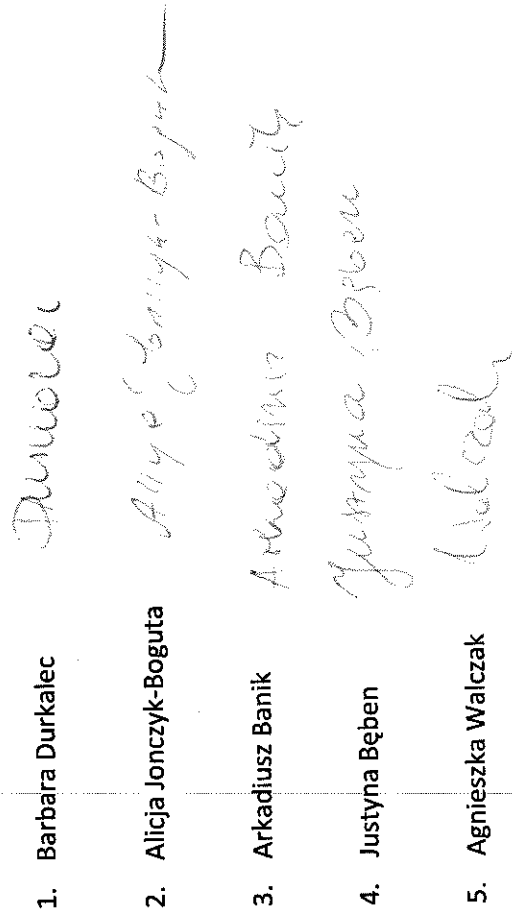 1. Barbara Durkalec Durkalec
2. Alicja Jonczyk-Boguta
3. Arkadiusz Banik Arkadiusz Banik
4. Justyna Bęben Justyna Bęben
5. Agnieszka Walczak Walczak